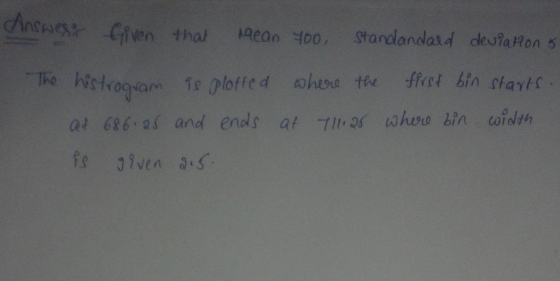 Answer:- Given that Mean 700, standandard deviation 5
The histrogram is plotted where the first bin starts.
at 686.25 and ends at 711.25 where bin width
is given 2.5.